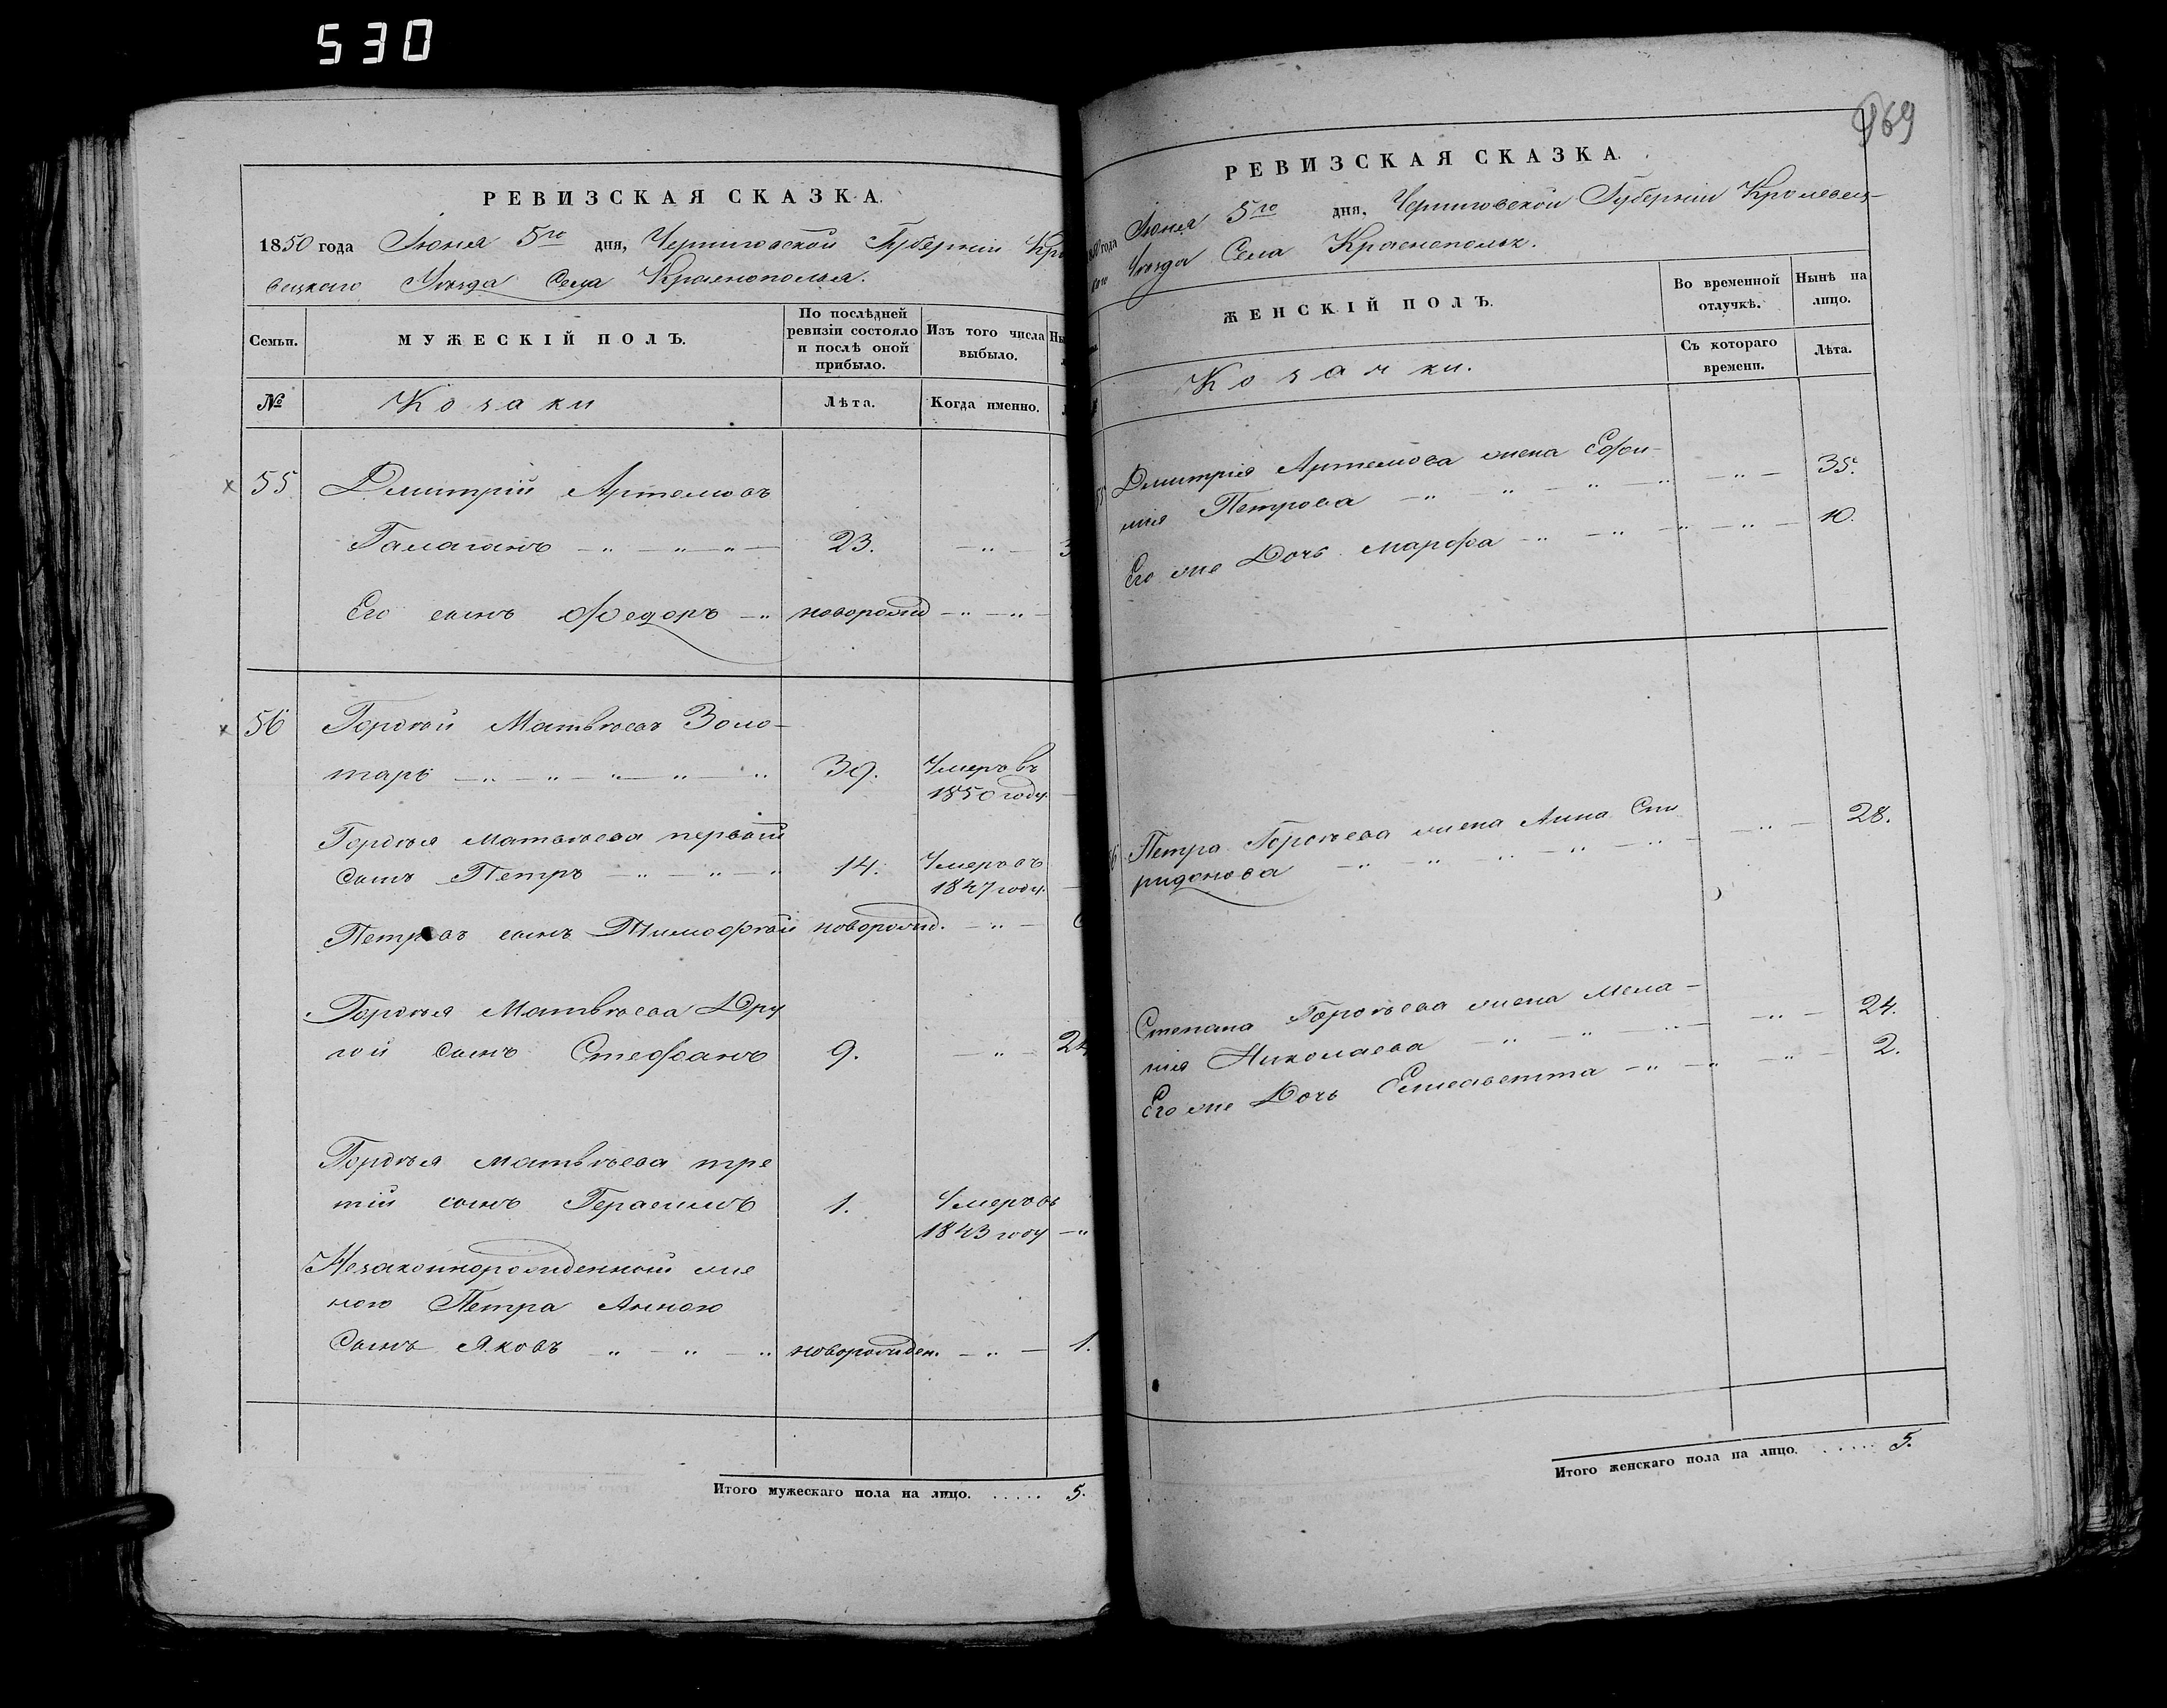 530
РЕВИЗСКАЯ СКАЗКА.
1850 года Іюня 5го дня, Черниговской Губерніи Кро
вецкаго Уѣзда Села Краснополья.
Семьи.
МУЖЕСКІЙ ПОЛЪ.
По послѣдней ревизіи состояло и послѣ оной прибыло.
Изъ того числа выбыло.
№
Козаки
Лѣта.
Когда именно.
55 Дмитрій Артемовъ
Галаганъ 23.
Его сынъ Федоръ новорожд
56 Гордѣй Матвѣевъ Золо-
тарь 39. Умеръ въ
1850 году.
Гордѣя Матвѣева первый
сынъ Петръ 14. Умеръ въ
1847 году.
Петровъ сынъ Тимофѣй новорожд.
Гордѣя Матвѣева Дру
гой сынъ Стефанъ 9. 24
Гордѣя Матвѣева тре
тій сынъ Герасимъ 1. Умеръ въ
1843 году
Незаконнорожденный же
ною Петра Анною
Сынъ Яковъ новорожден. 1.
Итого мужескаго пола на лицо. ..... 5.
169
РЕВИЗСКАЯ СКАЗКА.
1850 года Іюня 5го дня, Черниговской Губерніи Кролевец-
каго Уѣзда Села Краснополья.
ЖЕНСКІЙ ПОЛЪ.
Во временной отлучкѣ.
Нынѣ на лицо.
Козачки.
Съ котораго времени.
Лѣта.
55 Дмитрія Артемова жена Ефи-
мія Петрова 35.
Его же Дочь Марфа 10.
56 Петра Гордѣева жена Анна Спи
ридонова 28.
Степана Гордѣева жена Мела-
нія Николаева 24.
Его же Дочь Елисаветта 2.
Итого женскаго пола на лицо. ..... 5.